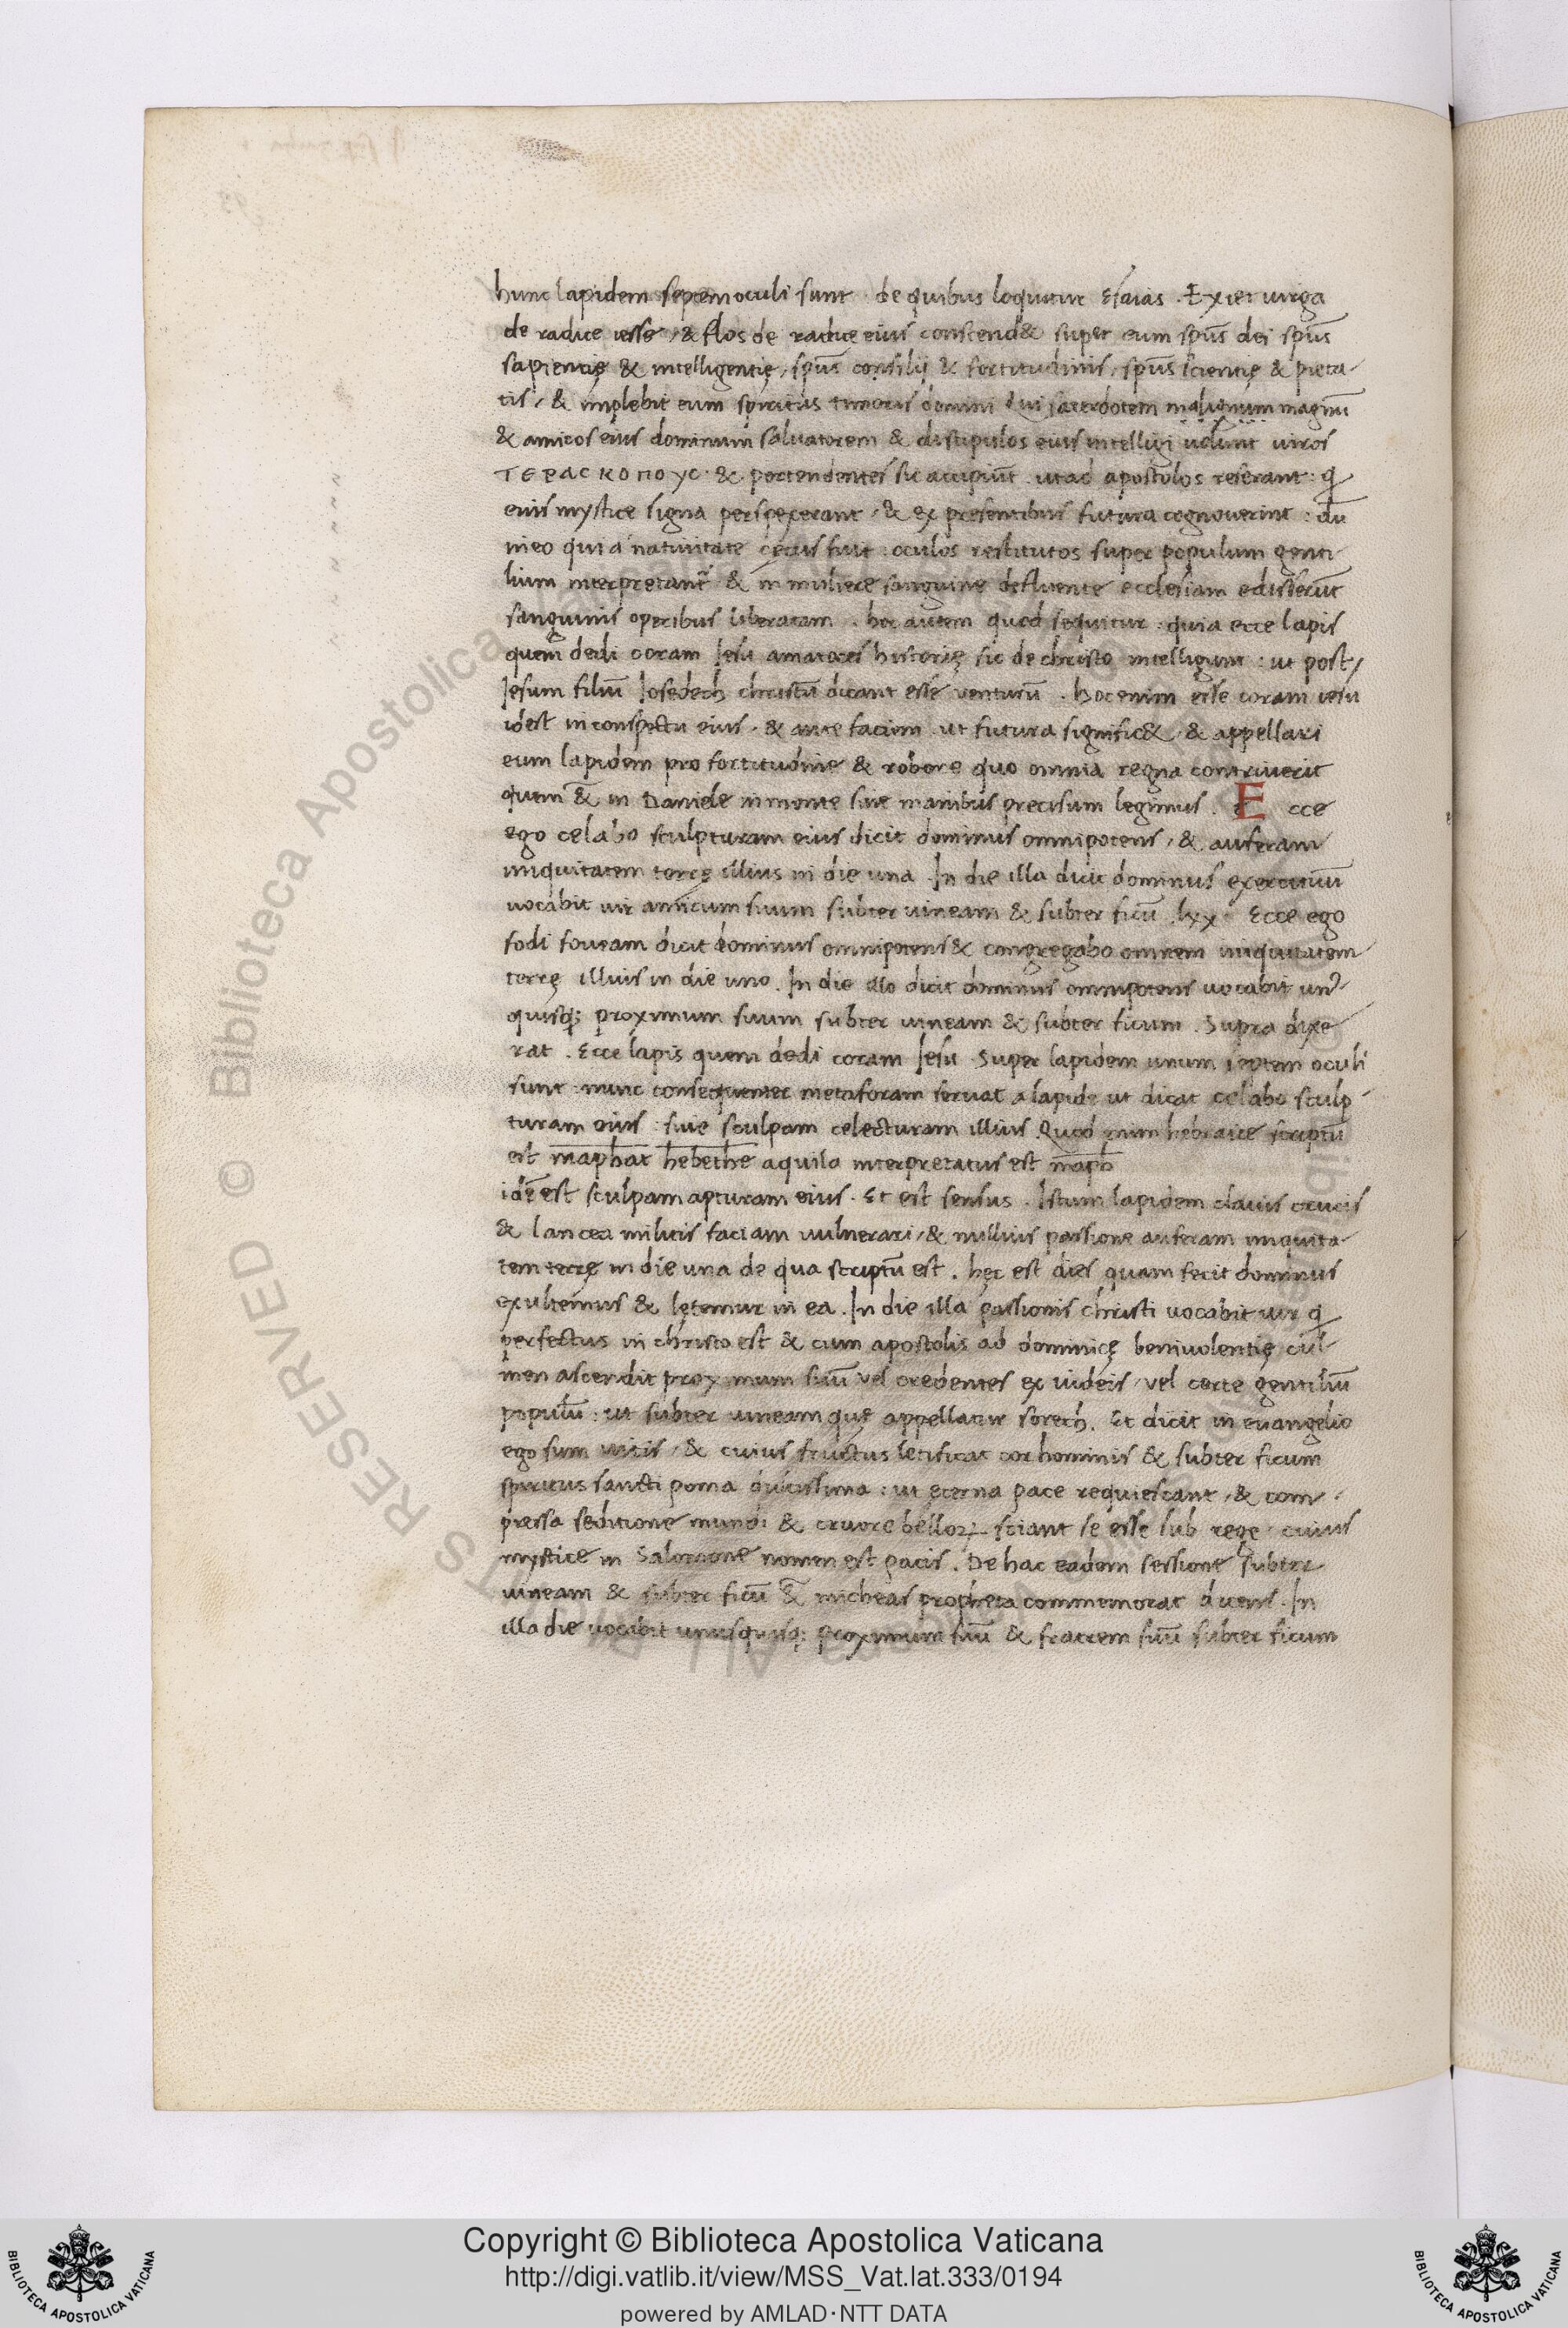 hunc lapidem septem oculi sunt · de quibus loquitur Esaias . Exiet uirga
de radice iesse , & flos de radice eius conscend& super eum sp̄us dei sp̄us
sapientię & intelligentię , sp̄us consilij & fortitudinis , sp̄us scientię & pieta-
tis , & implebit eum spiritus timoris domini Qui sacerdotem malignum magnū
& amicos eius dominum saluatorem & discipulos eius intelligi uolunt uiros
ΤΕΡΑCΚΟΠΟΥC · & portendentes sic accipiūt . ut ad apostolos referant : q
eius mystice signa perspexerant , & ex presentibus futura cognouerint : du
in eo qui a natiuitate cęcus fuit : oculos restitutos super populum genti-
lium interpretant & in muliere sanguine defluente ecclesiam edisserūt
sanguinis operibus liberatam . hoc autem quod sequitur : quia ecce lapis
quem dedi coram Iesu amatores historię sic de christo intelligunt : ut post
Iesum filiū Iosedech christū dicant esse uenturū . hoc enim esse coram iesu
idest in conspectu eius , & ante faciem ut futura signific& , & appellari
eum lapidem pro fortitudine & robore quo omnia regna contriuerit
quem &̄ in Daniele in monte sine manibus precisum legimus . E cce
ego celabo sculpturam eius dicit dominus omnipotens , & auferam
iniquitatem terrę illius in die una . In die illa dicit dominus exercituū
uocabit uir amicum suum subter uineam & subter ficū . lxx · Ecce ego
fodi foueam dicit dominus omnipotens & congregabo omnem iniquitatem
terrę illius in die uno . In die illo dicit dominus omnipotens uocabit un9-
quisq; proximum suum subter uineam & subter ficum . Supra dixe
rat . Ecce lapis quem dedi coram Iesu Super lapidem unum septem oculi
sunt : nunc consequenter metaforam seruat a lapide ut dicat celabo sculp-
turam eius : siue sculpam celecturam illius . Quod enim hebraice scriptū
est māphat hebethe aquila interpretatus est māph
idē est sculpam apturam eius . Et est sensus . Istum lapidem clauis crucis
& lancea militis faciam uulnerari , & in illius passione auferam iniquita-
tem terrę in die una de qua scriptū est . hęc est dies quam fecit dominus
exultemus & lętemur in ea . In die illa passionis christi uocabit uir q
perfectus in christo est & cum apostolis ad dominicę beniuolentię cul-
men ascendit proximum suū vel credentes ex iudeis , vel certe gentiliū
populū : ut subter uineam quę appellatur sorech . Et dicit in euangelio
ego sum uitis , & cuius fructus letificat cor hominis & subter ficum
spiritus sancti poma dulcissima : ut ęterna pace requiescant , & com-
pressa seditione mundi & cruore bellorꝝ sciant se esse sub rege : cuius
mystice in Salomone nomen est pacis . De hac eadem sessione subter
uineam & subter ficū &̄ micheas propheta commemorat dicens . In
illa die uocabit unusquisq; proximum suū & fratrem suū subter ficum
Copyright © Biblioteca Apostolica Vaticana
http://digi.vatlib.it/view/MSS_Vat.lat.333/0194
powered by AMLAD·NTT DATA
BIBLIOTECA APOSTOLICA VATICANA
BIBLIOTECA APOSTOLICA VATICANA